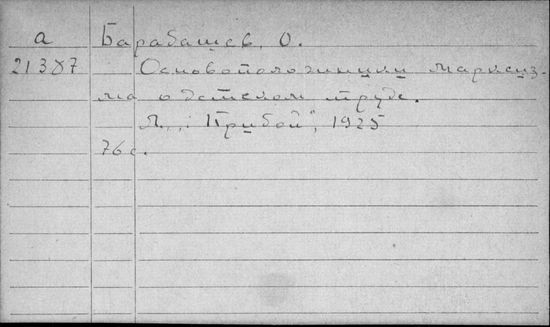 а Барабашев, О.
21387 Основоположники марксиз-
ма о детском труде.
Л., "Прибой", 1925
76 с.